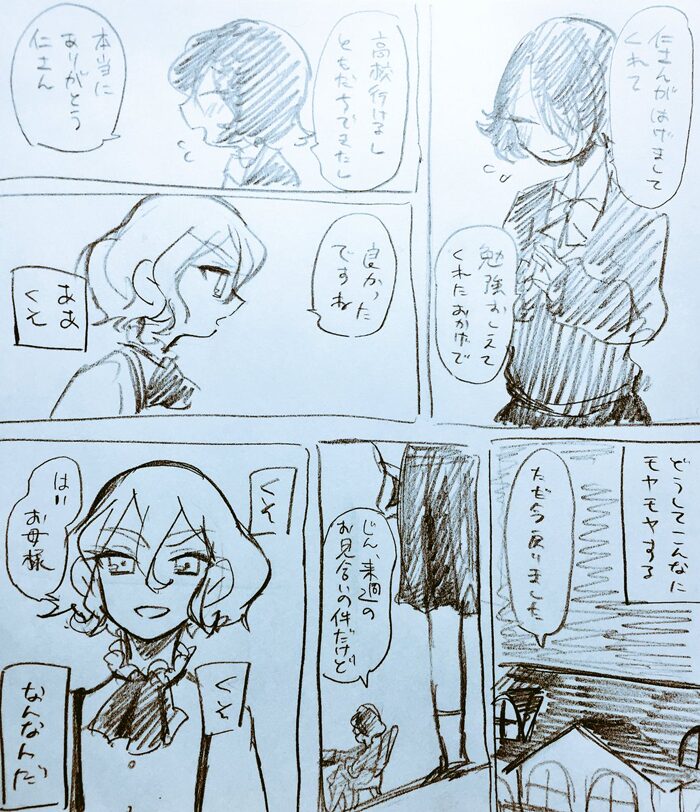 仁さんがはげまして
くれて
勉強おしえて
くれたおかげで
高校行けまし
ともだちできたし
本当に
ありがとう
仁さん
良かった
ですね
ああ
くそ
どうしてこんなに
モヤモヤする
ただ今戻りました
じん、来週の
お見合いの件だけど
くそ
はい
お母様
くそ
なんなんだ